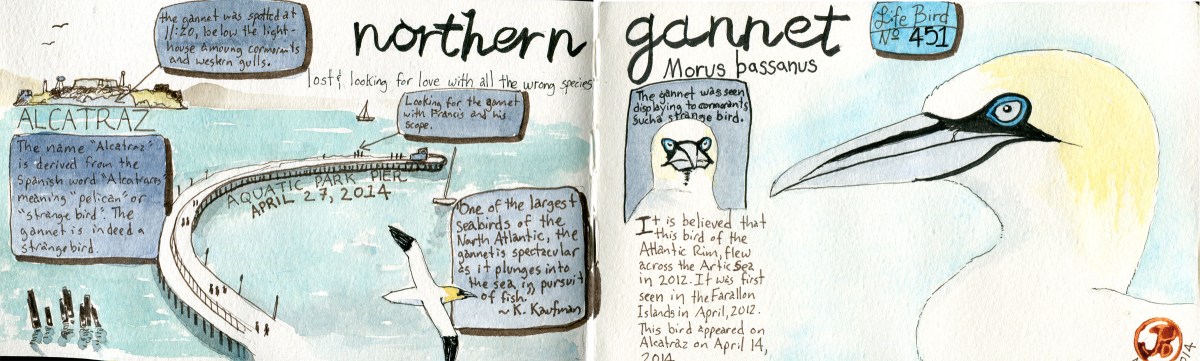 the gannet was spotted at
11:20, below the light-
house amoung cormorants
and western gulls.
northern gannet
Morus bassanus
Life Bird
Nº 451
lost & looking for love with all the wrong species
Looking for the gannet
with Prancis and his
scope.
ALCATRAZ
The name "Alcatraz"
is derived from the
Spanish word "Alcatraces"
meaning "pelican" or
"strange bird". The
gannet is indeed a
strange bird.
AQUATIC PARK PIER
APRIL 27, 2014
"One of the largest
seabirds of the
North Atlantic, the
gannet is spectacular
as it plunges into
the sea in pursuit
of fish.
~ K. Kaufman
The gannet was seen
displaying to cormorants
Such a strange bird.
It is believed that
this bird of the
Atlantic Rim, flew
across the Artic Sea
in 2012. It was first
seen in the Farallon
Islands in April, 2012.
This bird appeared on
Alcatraz on April 14,
2014